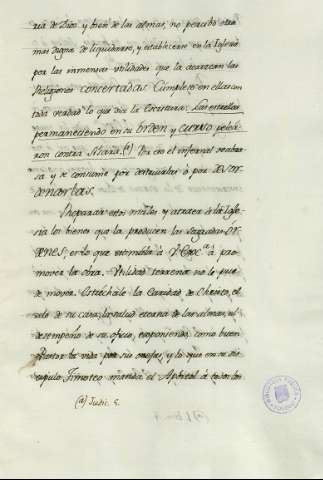 ria de Dios y bien de las almas, no percibo otra
mas digna de liquidarse, y establecerse en la Iglesia
por las inmensas utilidades que la acarrean las
Religiones concertadas. Cumplese en ellas con
toda verdad lo que dis la Escritura: Las estrellas
permaneciendo en su Orden y curso pelea
ron contra Sisara. (a) Por eso el infernal se abra
sa y se consume por destruirlas ó por desor
denarlas.
Reparar estos males y atraer á la Igle
sia los bienes que la producen las sagradas Or
denes, es lo que estimula á V. Exc.ª á pro
mover la obra. Utilidad terrena no le pue
de mover. Estrechale la Caridad de Christo, el
zelo de su casa, la salud eterna de las almas, el
desempeño de su oficio, exponiendo, como buen
Pastor la vida por sus ovejas, y lo que en su dis
cipulo Timoteo manda el Apostol á todos los
(a) Judic. 5.